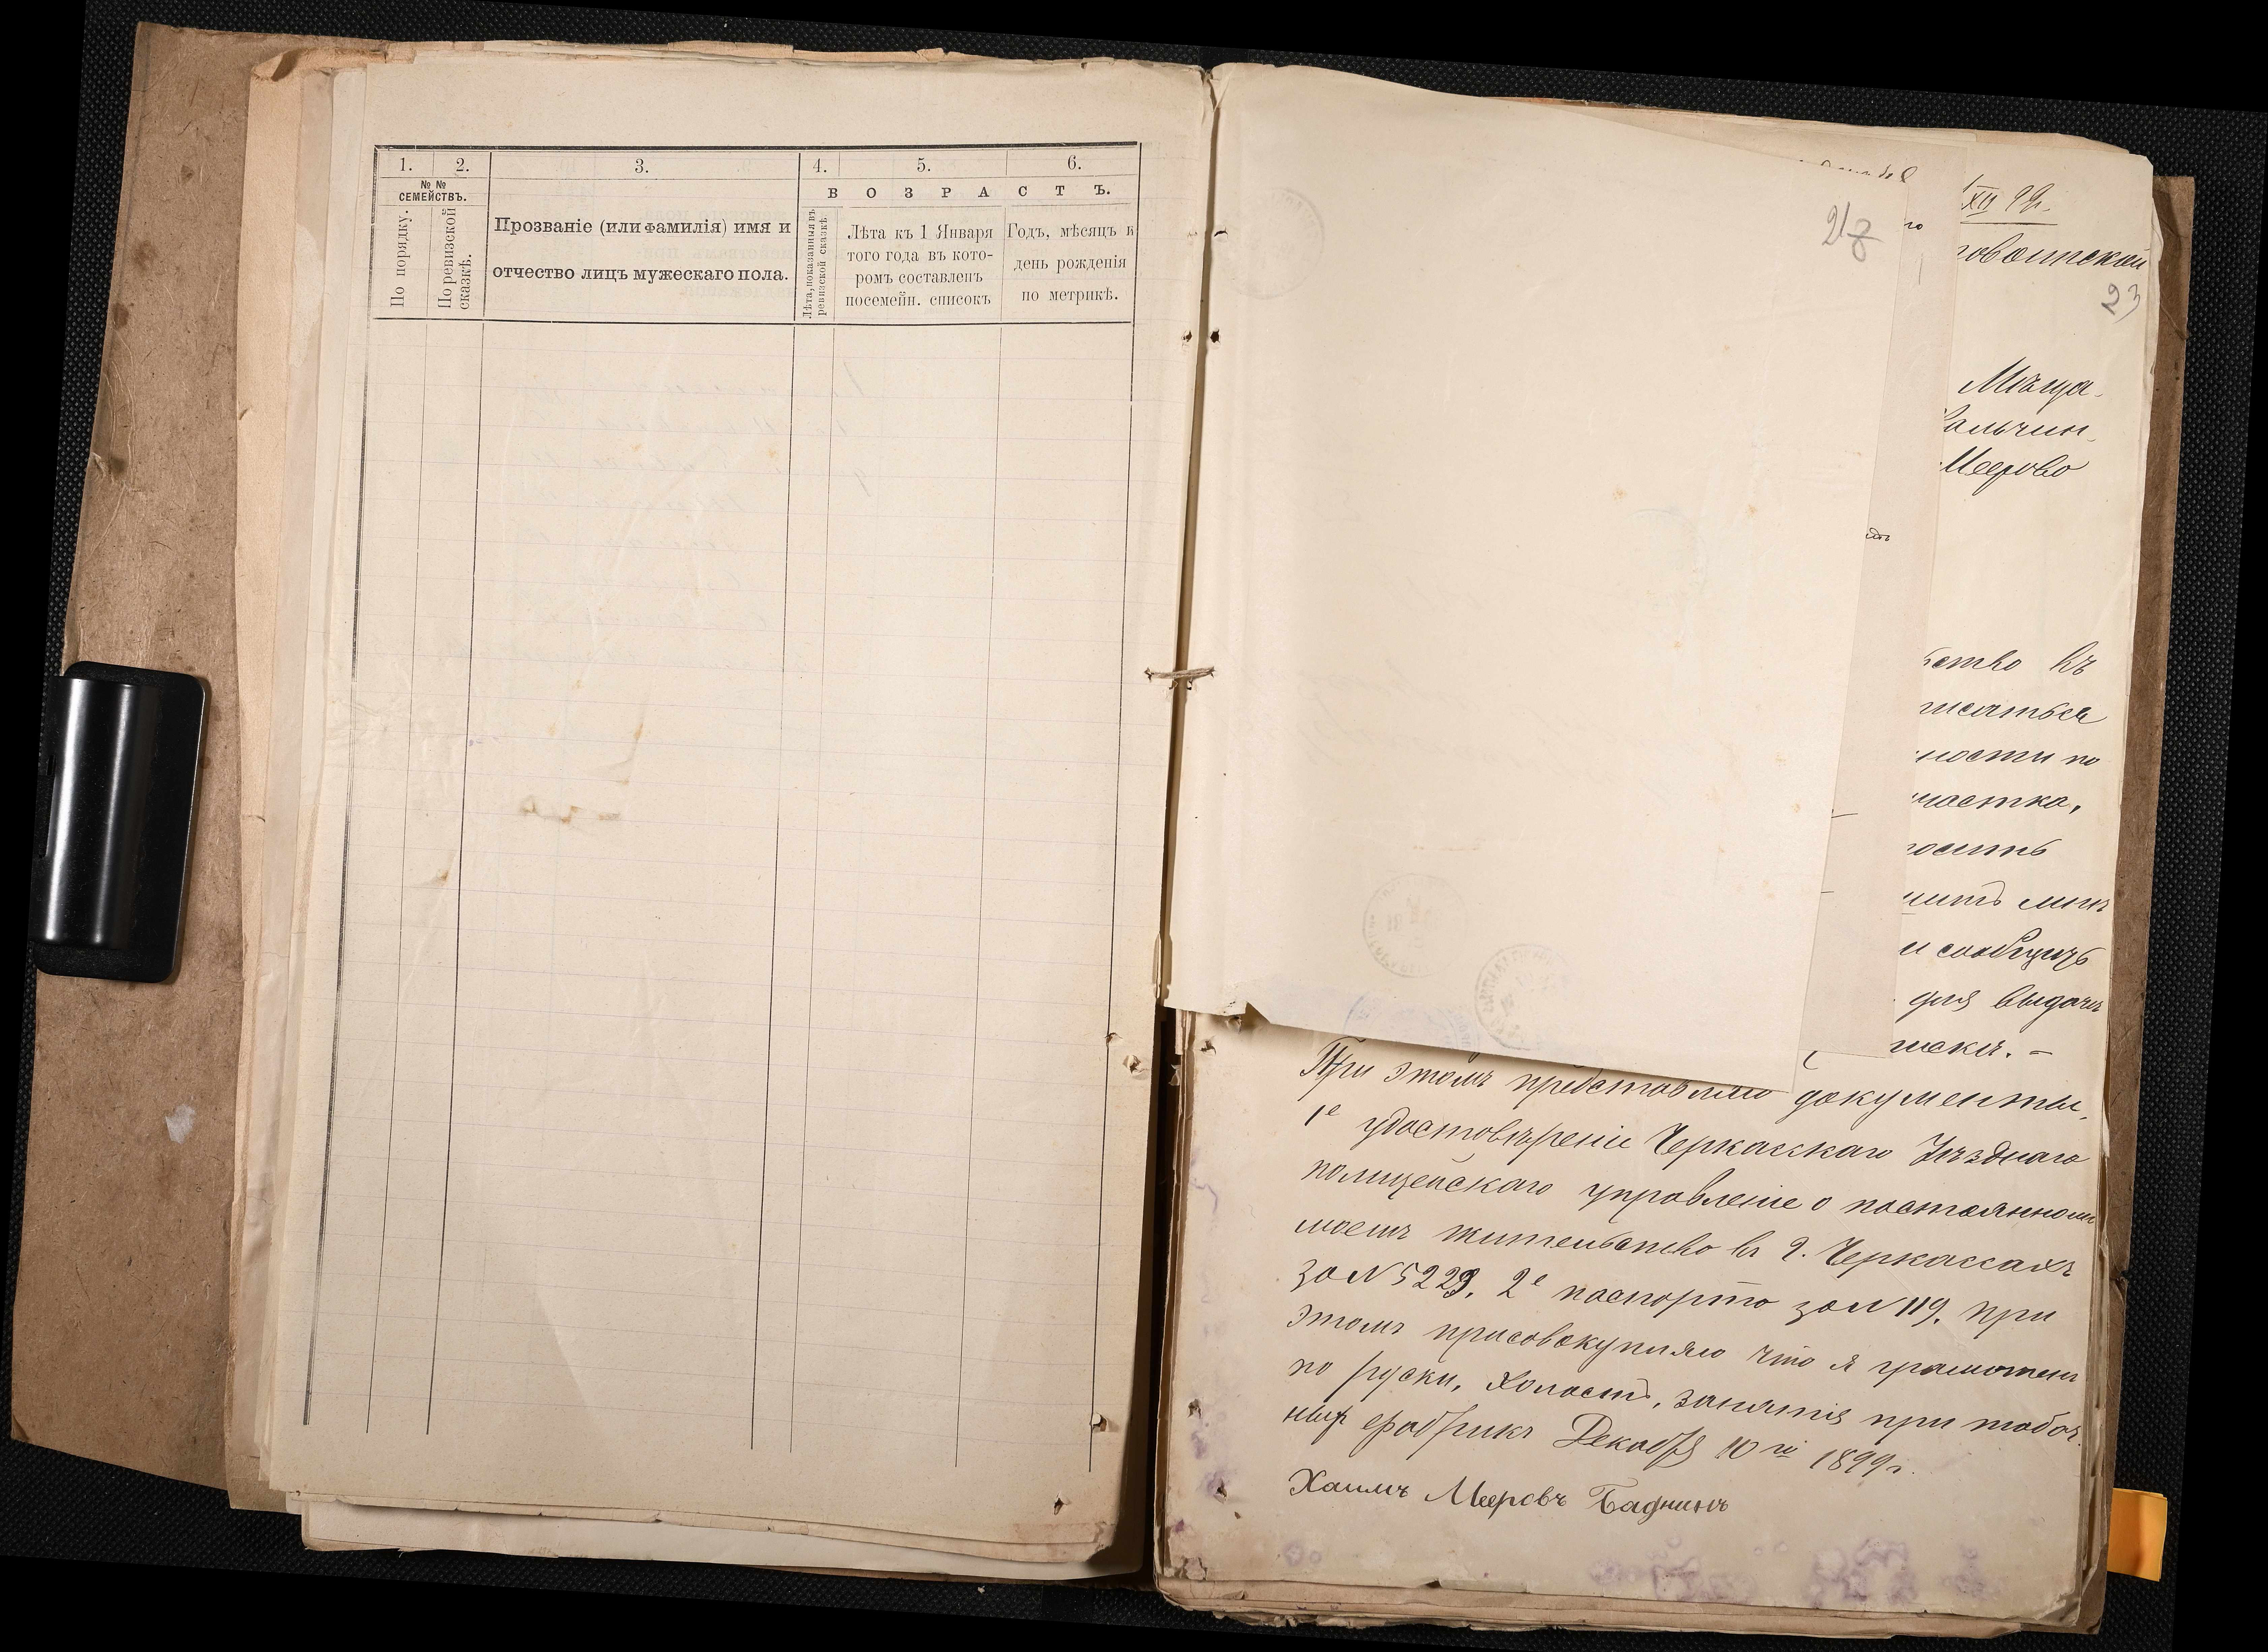 1. 2. 3. 4. 5. 6.
№ №
СЕМЕЙСТВЪ.
В О З Р А С Т Ъ.
По порядку.
По ревизской сказкѣ.
Прозваніе (или фамилія) имя и
отчество лицъ мужескаго пола.
Лѣта, показанныя въ ревизской сказкѣ
Лѣта къ 1 Января
того года въ кото-
ромъ составленъ
посемейн. списокъ
Годъ, мѣсяцъ и
день рожденія
по метрикѣ.
XII 99
23
Мѣща-
Меерово
ство въ
ности по
и сообщить
для выдачи
При этомъ представляю документы,
1е удостовѣреніе Черкасскаго Уѣзднаго
полицейскаго управленіе о постоянномъ
моемъ жительство въ г. Черкассахъ
за N 5229, 2е паспорто за N 119. при
этомъ присовокупляю что я грамотенъ
по руски, холостъ, занятія при табач
ный фабрикъ Декабря 10 го 1899 г.
Хаимъ Мееровъ Баднинъ